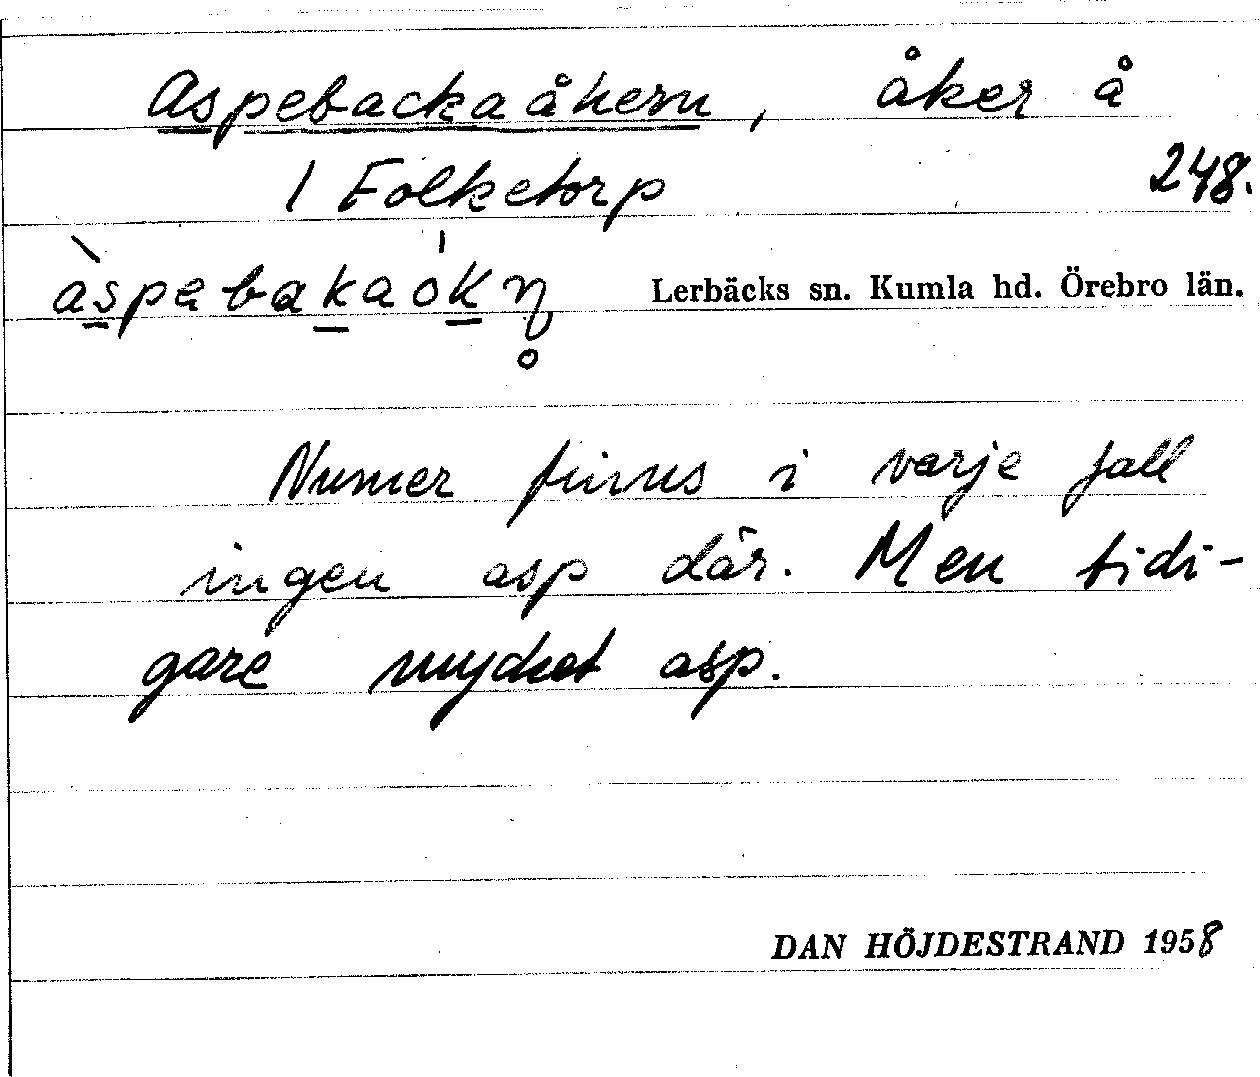 Aspebackaåkern, åker å
1 Folketorp 248.
às̲pebak̲aók̲ɳ̥ Lerbäcks sn. Kumla hd. Örebro län.
Numer finns i varje fall
ingen asp där. Men tidi-
gare mycket asp.
DAN HÖJDESTRAND 1958